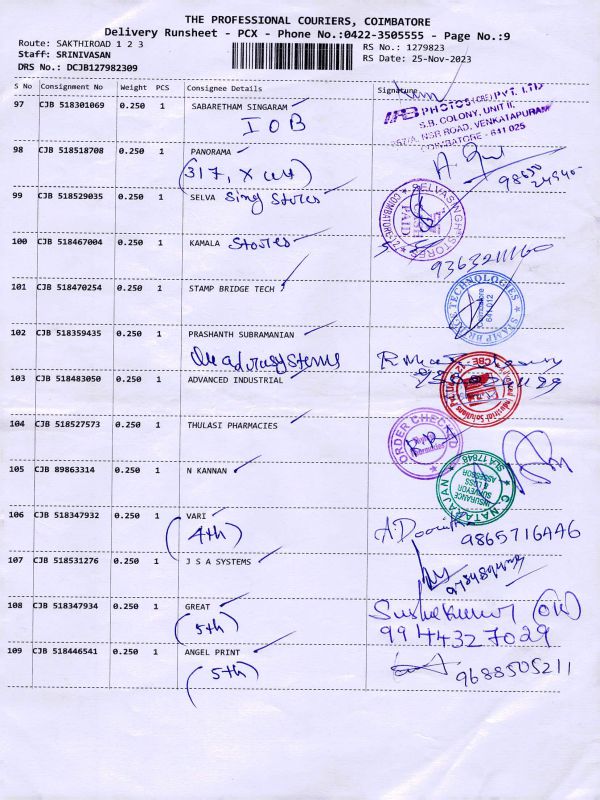 THE PROFESSIONAL COURIERS, COIMBATORE
Delivery Runsheet - PCX - Phone No.:0422-3505555 - Page No.:9
Route: SAKTHIROAD 1 2 3
RS No.: 1279823
Staff: SRINIVASAN
RS Date: 25-Nov-2023
DRS No.: DCJB127982309
S No Consignment No Weight PCS Consignee Details Signature
97 CJB 518301069 0.250 1 SABARETHAM SINGARAM
IOB
PHOTOS (CBE) PVT. LTD
S.B. COLONY, UNIT II,
NSR ROAD, VENKATAPURAM
COIMBATORE - 641 025
98 CJB 518518708 0.250 1 PANORAMA
(317, X cut)
99 CJB 518529035 0.250 1 SELVA Sing Stores
SELVASINGH STORES
PAID
COIMBATORE-12
100 CJB 518467004 0.250 1 KAMALA Stores
9363211160
101 CJB 518470254 0.250 1 STAMP BRIDGE TECH
STAMP BRIDGE TECHNOLOGIES
Coimbatore
641 012
102 CJB 518359435 0.250 1 PRASHANTH SUBRAMANIAN
103 CJB 518483050 0.250 1 ADVANCED INDUSTRIAL
Industrial Solutions
104 CJB 518527573 0.250 1 THULASI PHARMACIES
ORDER CHECKED
105 CJB 89863314 0.250 1 N KANNAN
C NATARAJAN
SLA 17848
INSURANCE
SURVEYOR
& LOSS
ASSESSOR
106 CJB 518347932 0.250 1 VARI
(4th)
9865716446
107 CJB 518531276 0.250 1 J S A SYSTEMS
108 CJB 518347934 0.250 1 GREAT
(5th)
9944327029
109 CJB 518446541 0.250 1 ANGEL PRINT
(5th)
9688505211